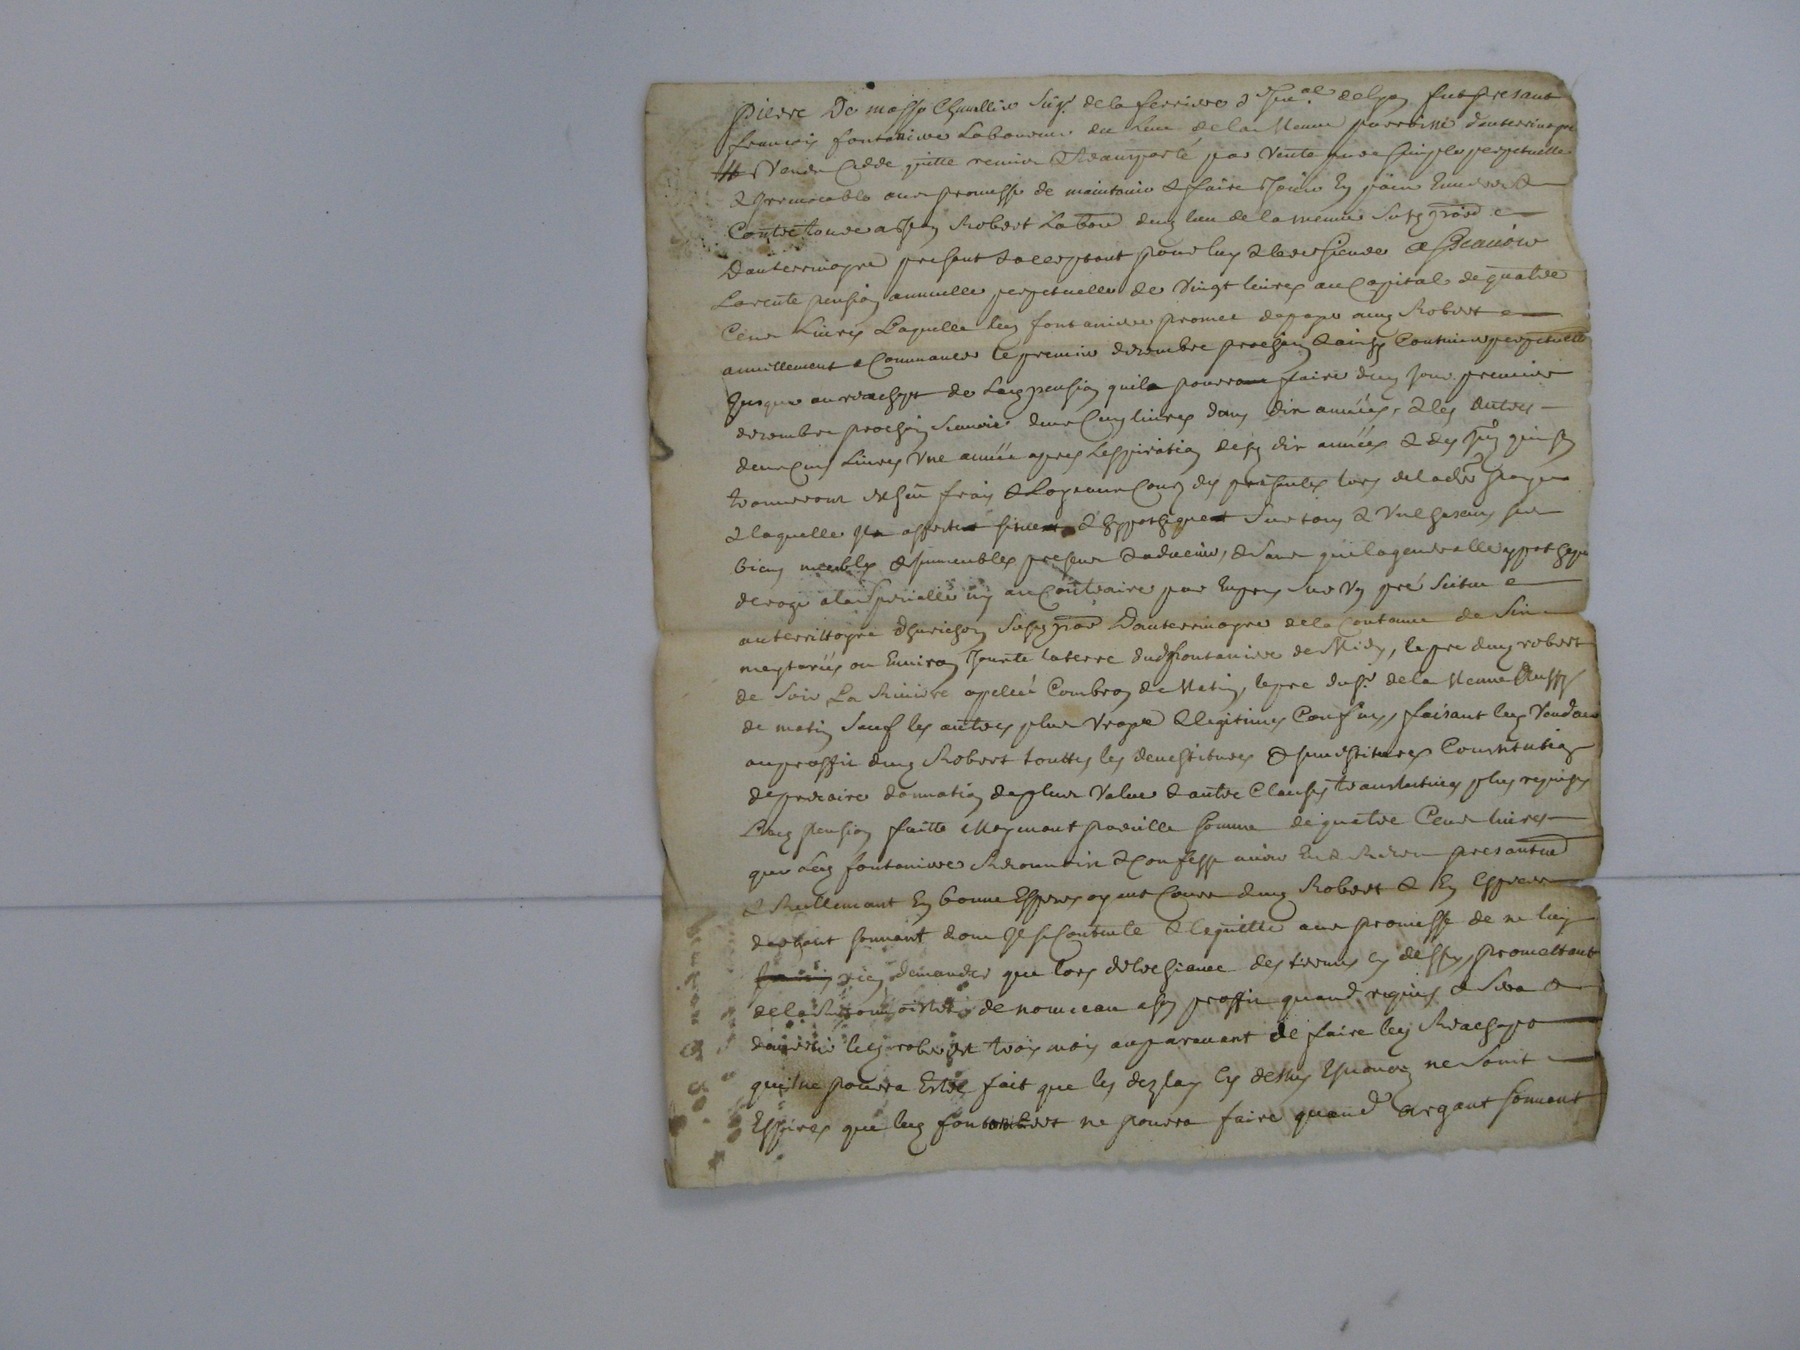 Pierre De masso Chevallier Seigr de la ferriere de lyon fut presant
francois fontaniere Laboureur du lieu de la Menue parroisse dauterivoyre
Vendu Cedde quitte remise & transporté par Vente pure simple perpetuelle
& irrevocable avec promesse de maintenir & faire Jouir En paix Envers &
Contre tous a Jean Robert Labour dud lieu de la menue susd parr
Dauterivoyre present & acceptant pour luy & les siens a scavoir
La rente pension annuelle perpetuelle de Vingt livres au Capital de quatre
Cens Livres Laquelle led fontaniere promet de payer aud Robert
annuellement a Commancer le premier decembre prochain & ainsy Continuer perpetuelle
Jusques au reachept de lad pension quil pourra faire dud Jour premier
decembre prochain scavoir deux Cens livres dans dix années, & les autres
deux Cens Livres Une année apres Lexpiration desd dix années & des qui sen
trouveront deheu frais & Loyaux Couts des presentes lors de lad
& laquelle affecte & hyppotheque sur tous & Uns chascuns ses
biens meubles & jmmeubles presens & advenir, & sans que la generalle yppotheque
deroge a la specialle ny au Contraire par Expres sur Un pré scitue
au territoyre susd parr Dauterivoyre de la Contenue de six
meyterées ou Environ Jouxte la terre dud fontaniere de Midy, le pre dud robert
de soir La Riviere apellée Conbron de Matin, le pre du sr de la Menue Aussy
de matin sauf les autres plus Vrays & legitimes Confins, faisant led Vendeur
au proffit dud Robert touttes les devestitures & jnvestitures Constitution
de precaire donnation de plus Value & autre Clauses translatives plus requises
Lad pension faitte Moyenant pareille somme de quatre Cens livres
que led fontaniere Reconnoit & Confesse avoir Eu & Receu presantemt
& Reellement En bonnes Especes ayant Cours dud Robert & En Especes
dargant sonnant dont Jl se Contente & lequitte avec promesse de ne luy
rien demander que lors delecheance des termes cy dessus, promettant
de la Reconnoistre de nouveau a son proffit quand requis & sera
d'avertir led robert trois mois auparavant de faire led Reachapt
qui ne pourra Estre fait que les dezlay cy dessus Enoncez ne soint
Expirez que led fontaniere ne pourra faire quand argant sonnant